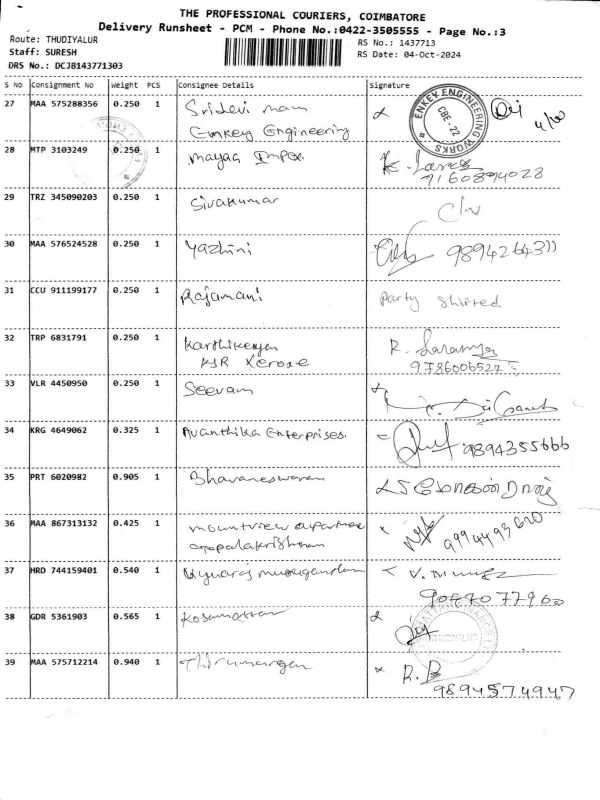 THE PROFESSIONAL COURIERS, COIMBATORE
Delivery Runsheet - PCM - Phone No.:0422-3505555 - Page No.:3
Route: THUDIYALUR
RS No.: 1437713
Staff: SURESH
RS Date: 04-Oct-2024
DRS No.: DCJB143771303
S No Consignment No Weight PCS Consignee Details Signature
27 MAA 575288356 0.250 1 Sridevi mam
Emkey Engineering
ENKEY ENGINEERING WORKS CBE-22
28 MTP 3103249 0.250 1 mayaa Impex.
7160894028
29 TRZ 345090203 0.250 1 Sivakumar
30 MAA 576524528 0.250 1 Yazhini 9894264311
31 CCU 911199177 0.250 1 Rajamani Party Shifted
32 TRP 6831791 0.250 1 Karthikeyan R. Saranya
KJR Xerox 9786006527
33 VLR 4450950 0.250 1 Seevam
34 KRG 4649062 0.325 1 Avanthika Enterprises. 9894355666
35 PRT 6020982 0.905 1 Bhavaneswaran
36 MAA 867313132 0.425 1 mountview
Gopalakrishnan 9994493620
37 HRD 744159401 0.540 1
38 GDR 5361903 0.565 1 Kosamattam
39 MAA 575712214 0.940 1 Thirumurgan R.B
9894574947